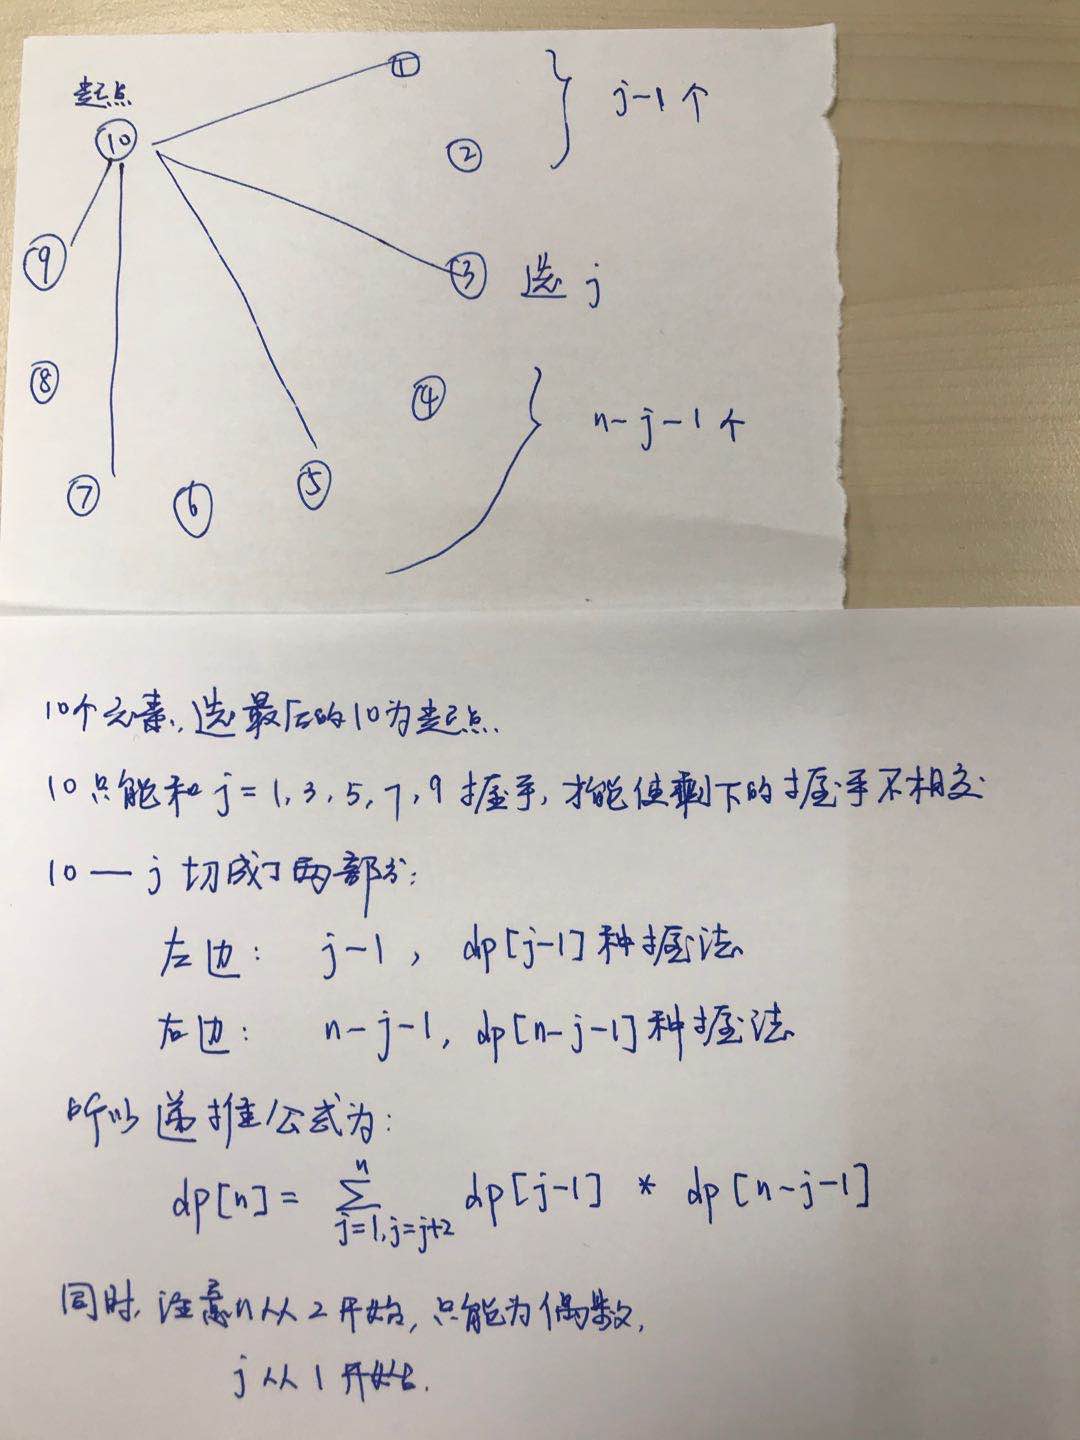 起点
①
j-1个
⑩
②
⑨
③ 选 j
⑧
④
n-j-1个
⑦
⑥
⑤
10个元素,选最后的10为起点.
10只能和 j=1,3,5,7,9 握手,才能使剩下的握手不相交
10 — j 切成了两部分:
左边: j-1, dp[j-1]种握法
右边: n-j-1, dp[n-j-1]种握法
所以递推公式为:
dp[n] = ∑ dp[j-1] * dp[n-j-1]
n
j=1,j=j+2
同时,注意n从2开始,只能为偶数,
j从1开始.